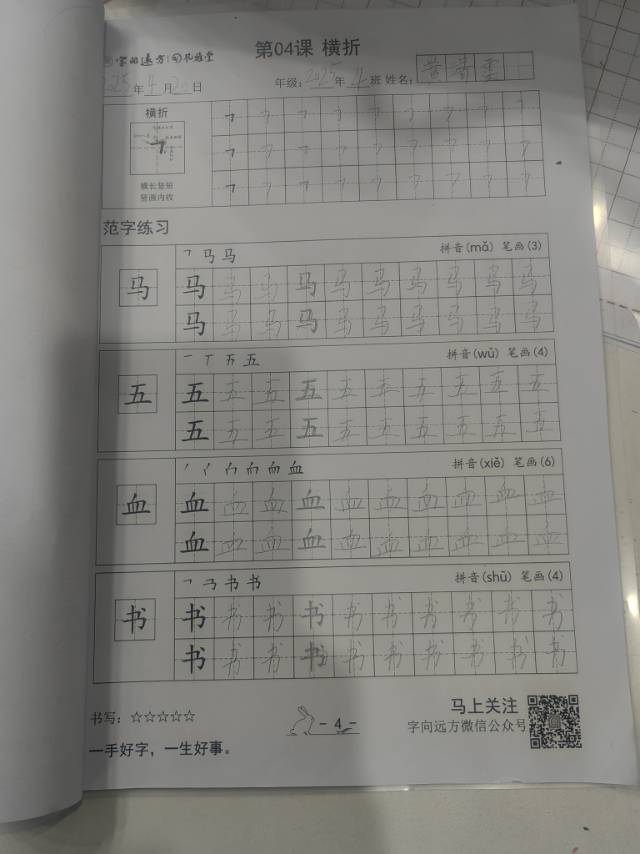 第04课 横折
字向远方
2025年4月20日
年级：2025年4班 姓名：
横折
横长竖短
竖画内收
范字练习
马
㇕ 马 马
拼音(mǎ) 笔画(3)
马 马 马 马 马 马 马 马 马 马
马 马 马 马 马 马 马 马 马 马
五
一 丅 五
拼音(wǔ) 笔画(4)
五 五 五 五 五 五 五 五 五 五
五 五 五 五 五 五 五 五 五 五
血
血
拼音(xiě) 笔画(6)
血 血 血 血 血 血 血 血 血 血
血 血 血 血 血 血 血 血 血 血
书
㇕ 书 书
拼音(shū) 笔画(4)
书 书 书 书 书 书 书 书 书 书
书 书 书 书 书 书 书 书 书 书
书写：☆☆☆☆☆
一手好字，一生好事。
- 4 -
马上关注
字向远方微信公众号